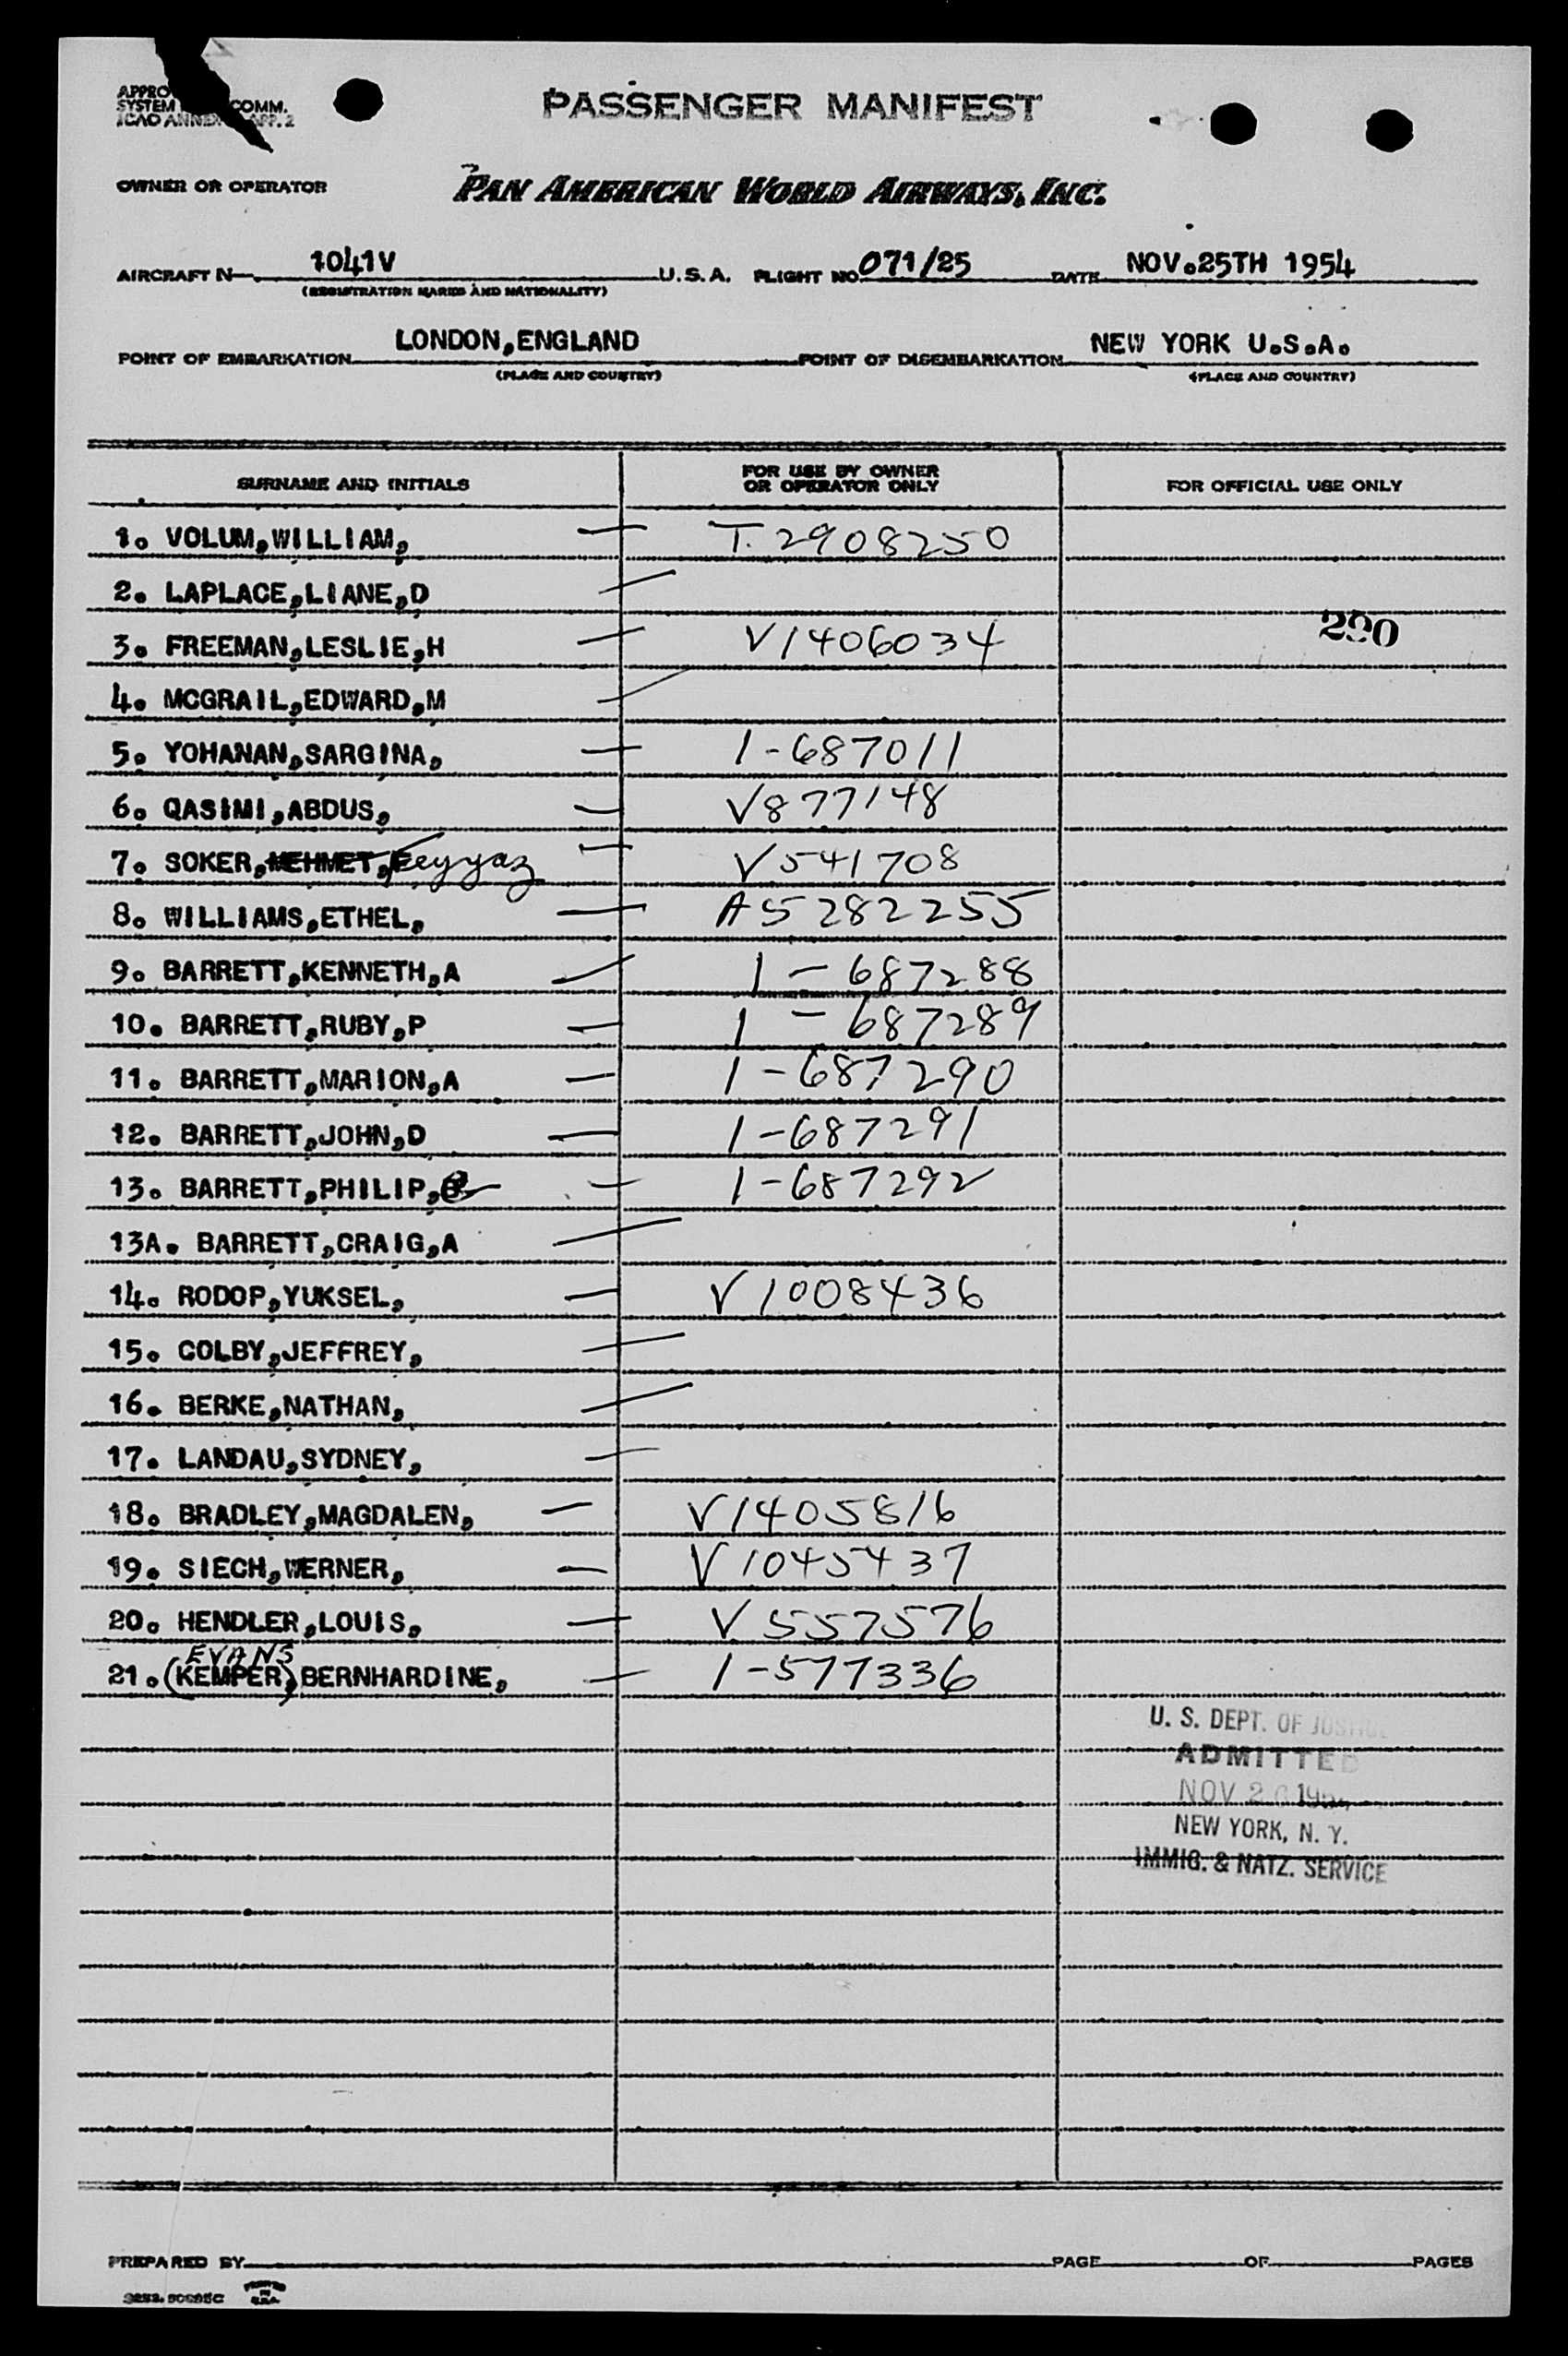 PASSENGER MANIFEST
SYSTEM COMM.
ICAO ANNEX APP. 2
OWNER OR OPERATOR PAN AMERICAN WORLD AIRWAYS, INC.
AIRCRAFT N 1041V U.S.A. FLIGHT NO. 071/25 DATE NOV.25TH 1954
(REGISTRATION MARKS AND NATIONALITY)
POINT OF EMBARKATION LONDON,ENGLAND POINT OF DISEMBARKATION NEW YORK U.S.A.
(PLACE AND COUNTRY) (PLACE AND COUNTRY)
SURNAME AND INITIALS FOR USE BY OWNER OR OPERATOR ONLY FOR OFFICIAL USE ONLY
1. VOLUM,WILLIAM, — T. 2908250
2. LAPLACE,LIANE,D —
3. FREEMAN,LESLIE,H — V1406034 290
4. MCGRAIL,EDWARD,M —
5. YOHANAN,SARGINA, — 1-687011
6. QASIMI,ABDUS, — V877148
7. SOKER,MEHMET,Feyyaz — V541708
8. WILLIAMS,ETHEL, — A5282255
9. BARRETT,KENNETH,A — 1-687288
10. BARRETT,RUBY,P — 1-687289
11. BARRETT,MARION,A — 1-687290
12. BARRETT,JOHN,D — 1-687291
13. BARRETT,PHILIP, — 1-687292
13A. BARRETT,CRAIG,A —
14. RODOP,YUKSEL, — V1008436
15. COLBY,JEFFREY, —
16. BERKE,NATHAN, —
17. LANDAU,SYDNEY, —
18. BRADLEY,MAGDALEN, — V1405816
19. SIECH,WERNER, — V1045437
20. HENDLER,LOUIS, — V557576
EVANS
21.(KEMPER) BERNHARDINE, — 1-577336
U. S. DEPT. OF JUSTICE
ADMITTED
NOV 26 1954
NEW YORK, N. Y.
IMMIG. & NATZ. SERVICE
PREPARED BY PAGE OF PAGES